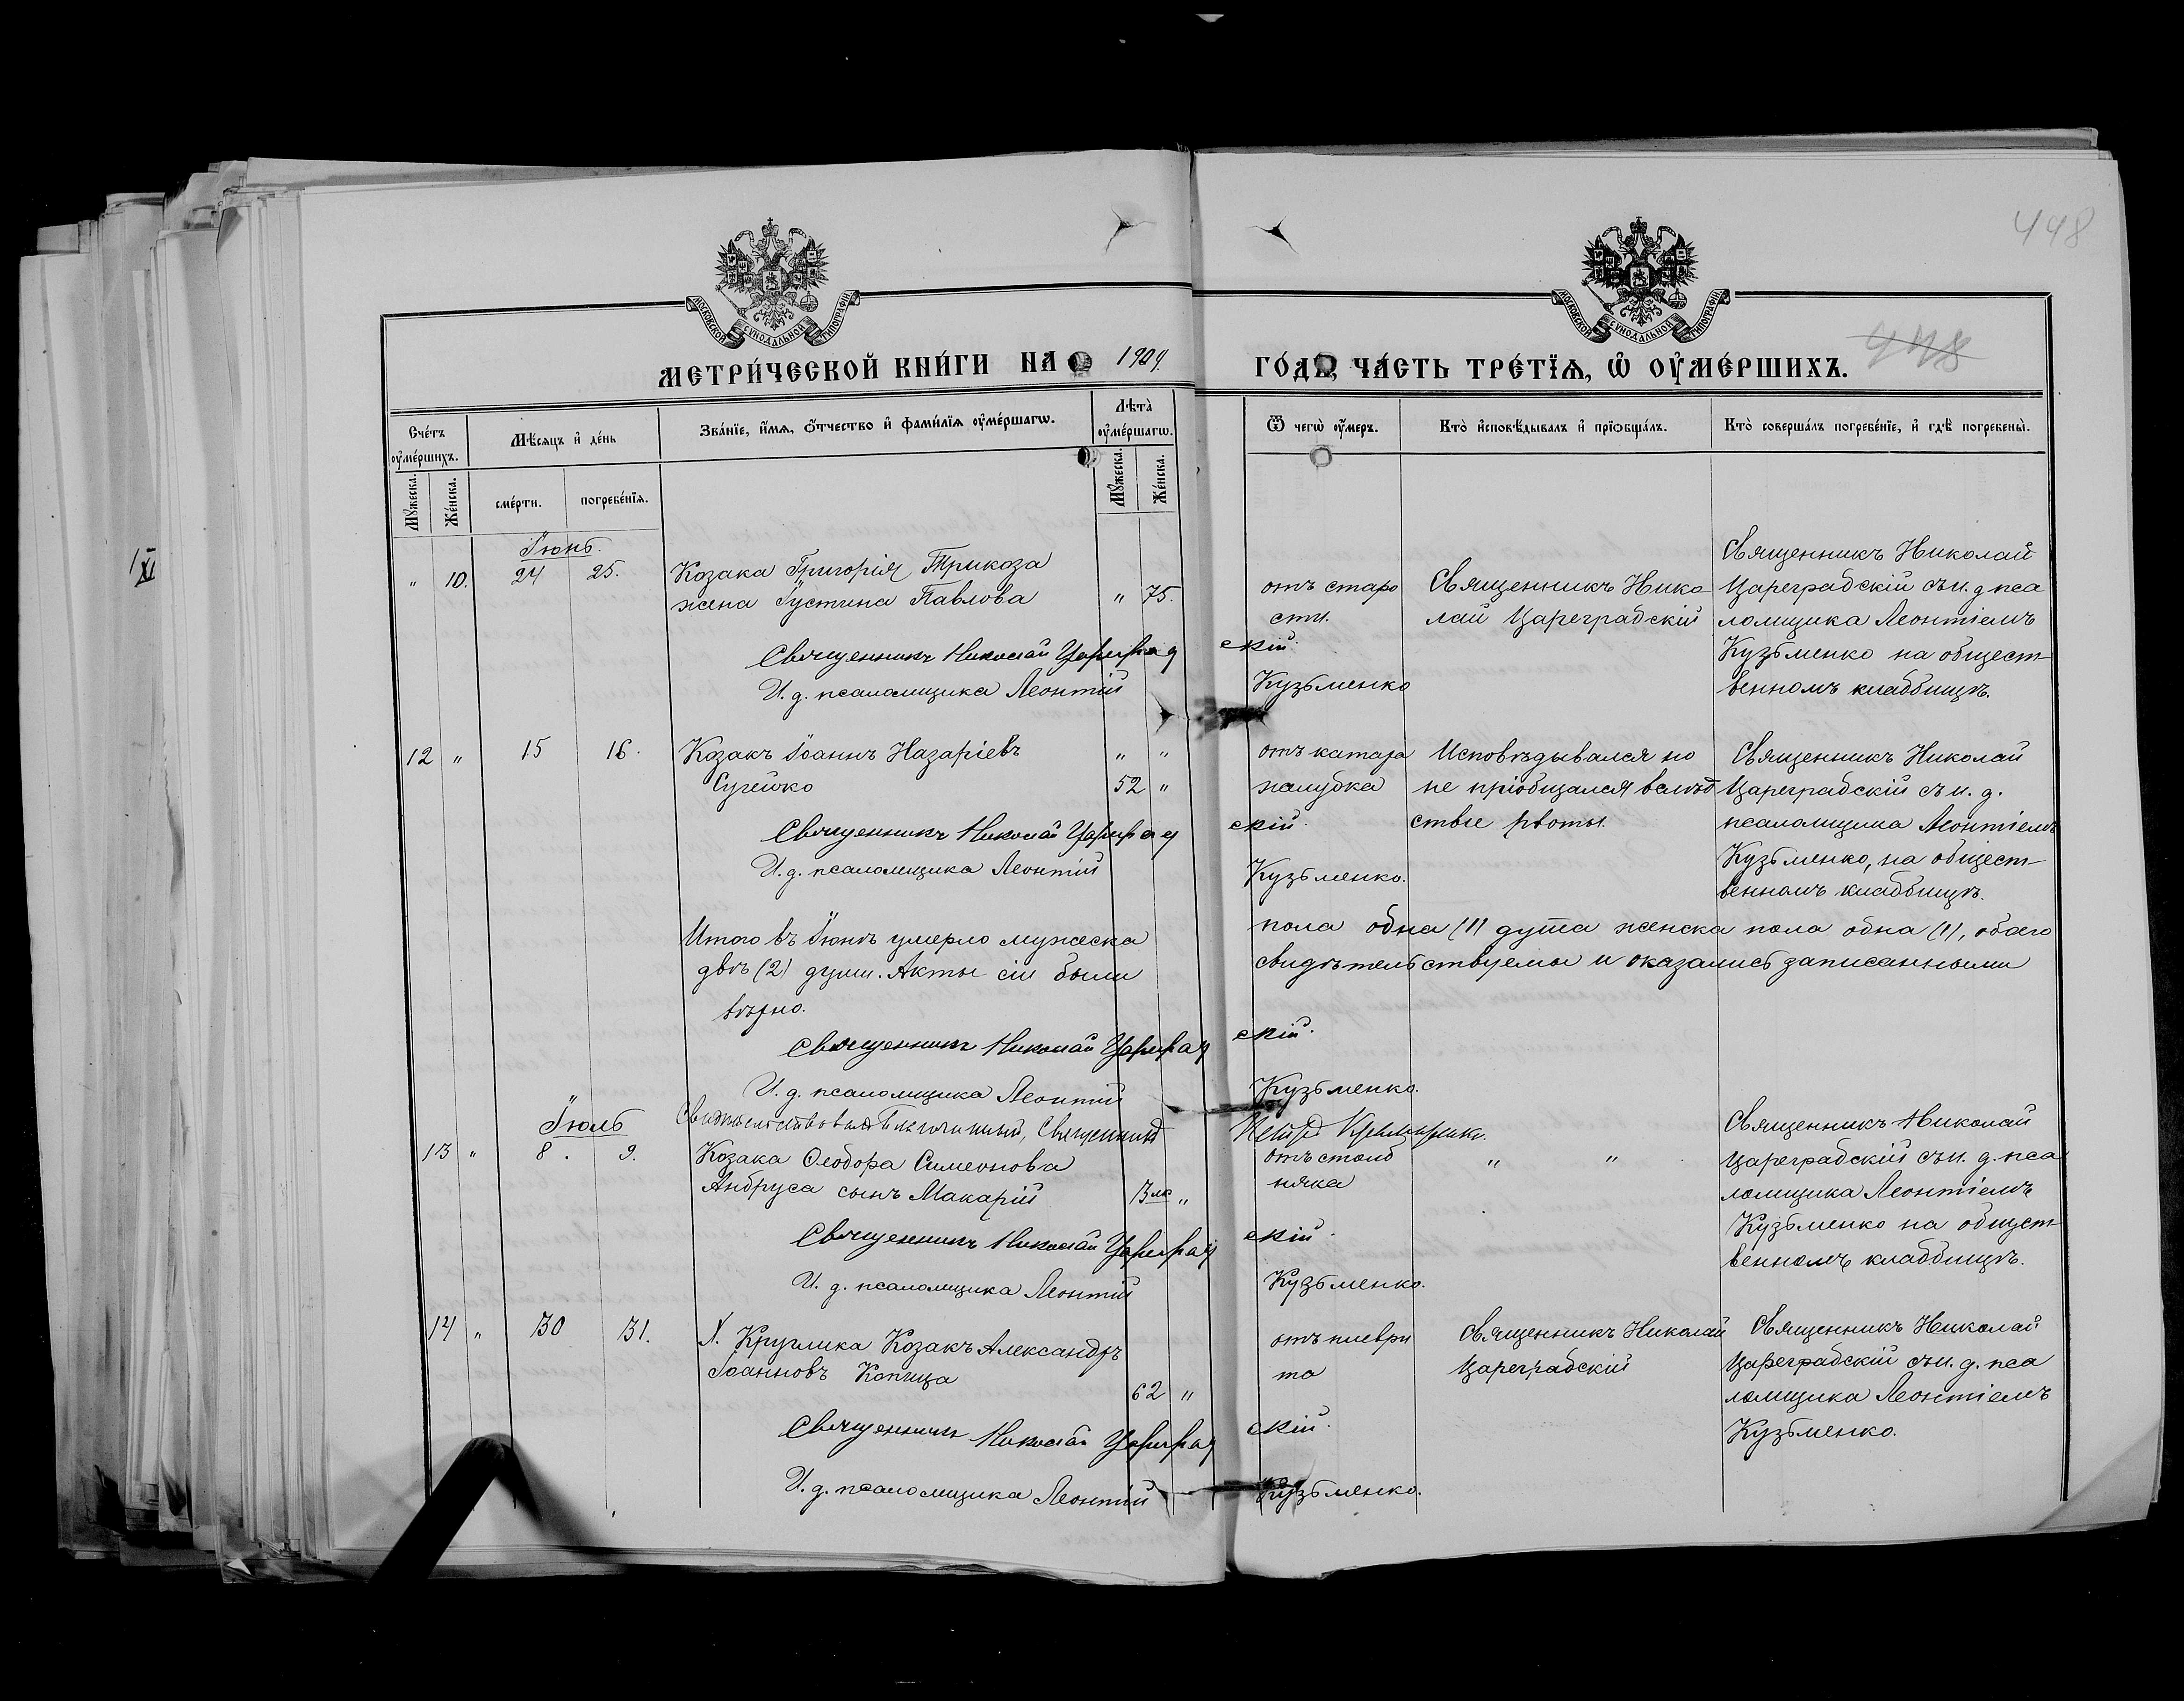 448
448
МОСКОВСКОЙ СѴНОДАЛЬНОЙ ТИПОГРАФІИ
МОСКОВСКОЙ СѴНОДАЛЬНОЙ ТИПОГРАФІИ
МЕТРИ́ЧЕСКОЙ КНИ́ГИ НА 1909. ГО́ДЪ, ЧА́СТЬ ТРЕ́ТЇѦ, Ѡ҆ ОУ҆МЕ́РШИХЪ.
Сче́тъ оу҆ме́ршихъ.
Мꙋ́жеска.
Же́нска.
Мѣ́сѧцъ и҆ де́нь
сме́рти.
погребе́нїѧ.
Зва́нїе, и҆́мѧ, ѻ҆́тчество и҆ фами́лїѧ оу҆ме́ршагѡ.
Лѣта̀ оу҆ме́ршагѡ.
Мꙋ́жеска.
Же́нска.
Ѿ чегѡ̀ оу҆́меръ.
Кто̀ и҆сповѣ́дывалъ и҆ прїѡбща́лъ.
Кто̀ соверша́лъ погребе́нїе, и҆ гдѣ̀ погребены̀.
Іюнь.
" 10. 24 25.
Козака Григорія Трикоза
жена Іустина Павлова " 75.
отъ старо
сти.
Священникъ Нико
лай Цареградскій
Священникъ Николай
Цареградскій съ и. д. пса
ломщика Леонтіемъ
Кузьменко на общест-
венномъ кладбищѣ.
Священникъ Николай Цареградскій.
И. д. псаломщика Леонтій Кузьменко
12 " 15 16.
Козакъ Іоаннъ Назаріевъ " "
52 "
отъ катара
желудка
Исповѣдывался но
не пріобщался вслѣд
ствіе рвоты.
Священникъ Николай
Цареградскій съ и. д.
псаломщика Леонтіемъ
Кузьменко, на общест-
венномъ кладбищѣ.
Священникъ Николай Цареградскій.
И. д. псаломщика Леонтій Кузьменко.
Итого въ Іюнѣ умерло мужеска пола одна (1) душа женска пола одна (1), обоего
двѣ (2) душ. Акты сіи были свидѣтельствуемы и оказались записанными
вѣрно.
Священникъ Николай Цареградскій.
И. д. псаломщика Леонтій Кузьменко.
Свидѣтельствовалъ Благочинный, Священникъ
Іюль
13 " 8. 9.
Козака Ѳеодора Симеонова
Андруса сынъ Макарій 3 "
отъ столб
няка
" "
Священникъ Николай
Цареградскій съ и. д. пса
ломщика Леонтіемъ
Кузьменко на общест
венномъ кладбищѣ.
Священникъ Николай Цареградскій.
И. д. псаломщика Леонтій Кузьменко.
14 " 30 31.
Х. Круглика Козакъ Александръ
Іоанновъ Копица
62 "
отъ плеври
та
Священникъ Николай
Цареградскій
Священникъ Николай
Цареградскій съ и. д. пса
ломщика Леонтіемъ
Кузьменко.
Священникъ Николай Цареградскій.
И. д. псаломщика Леонтій Кузьменко.